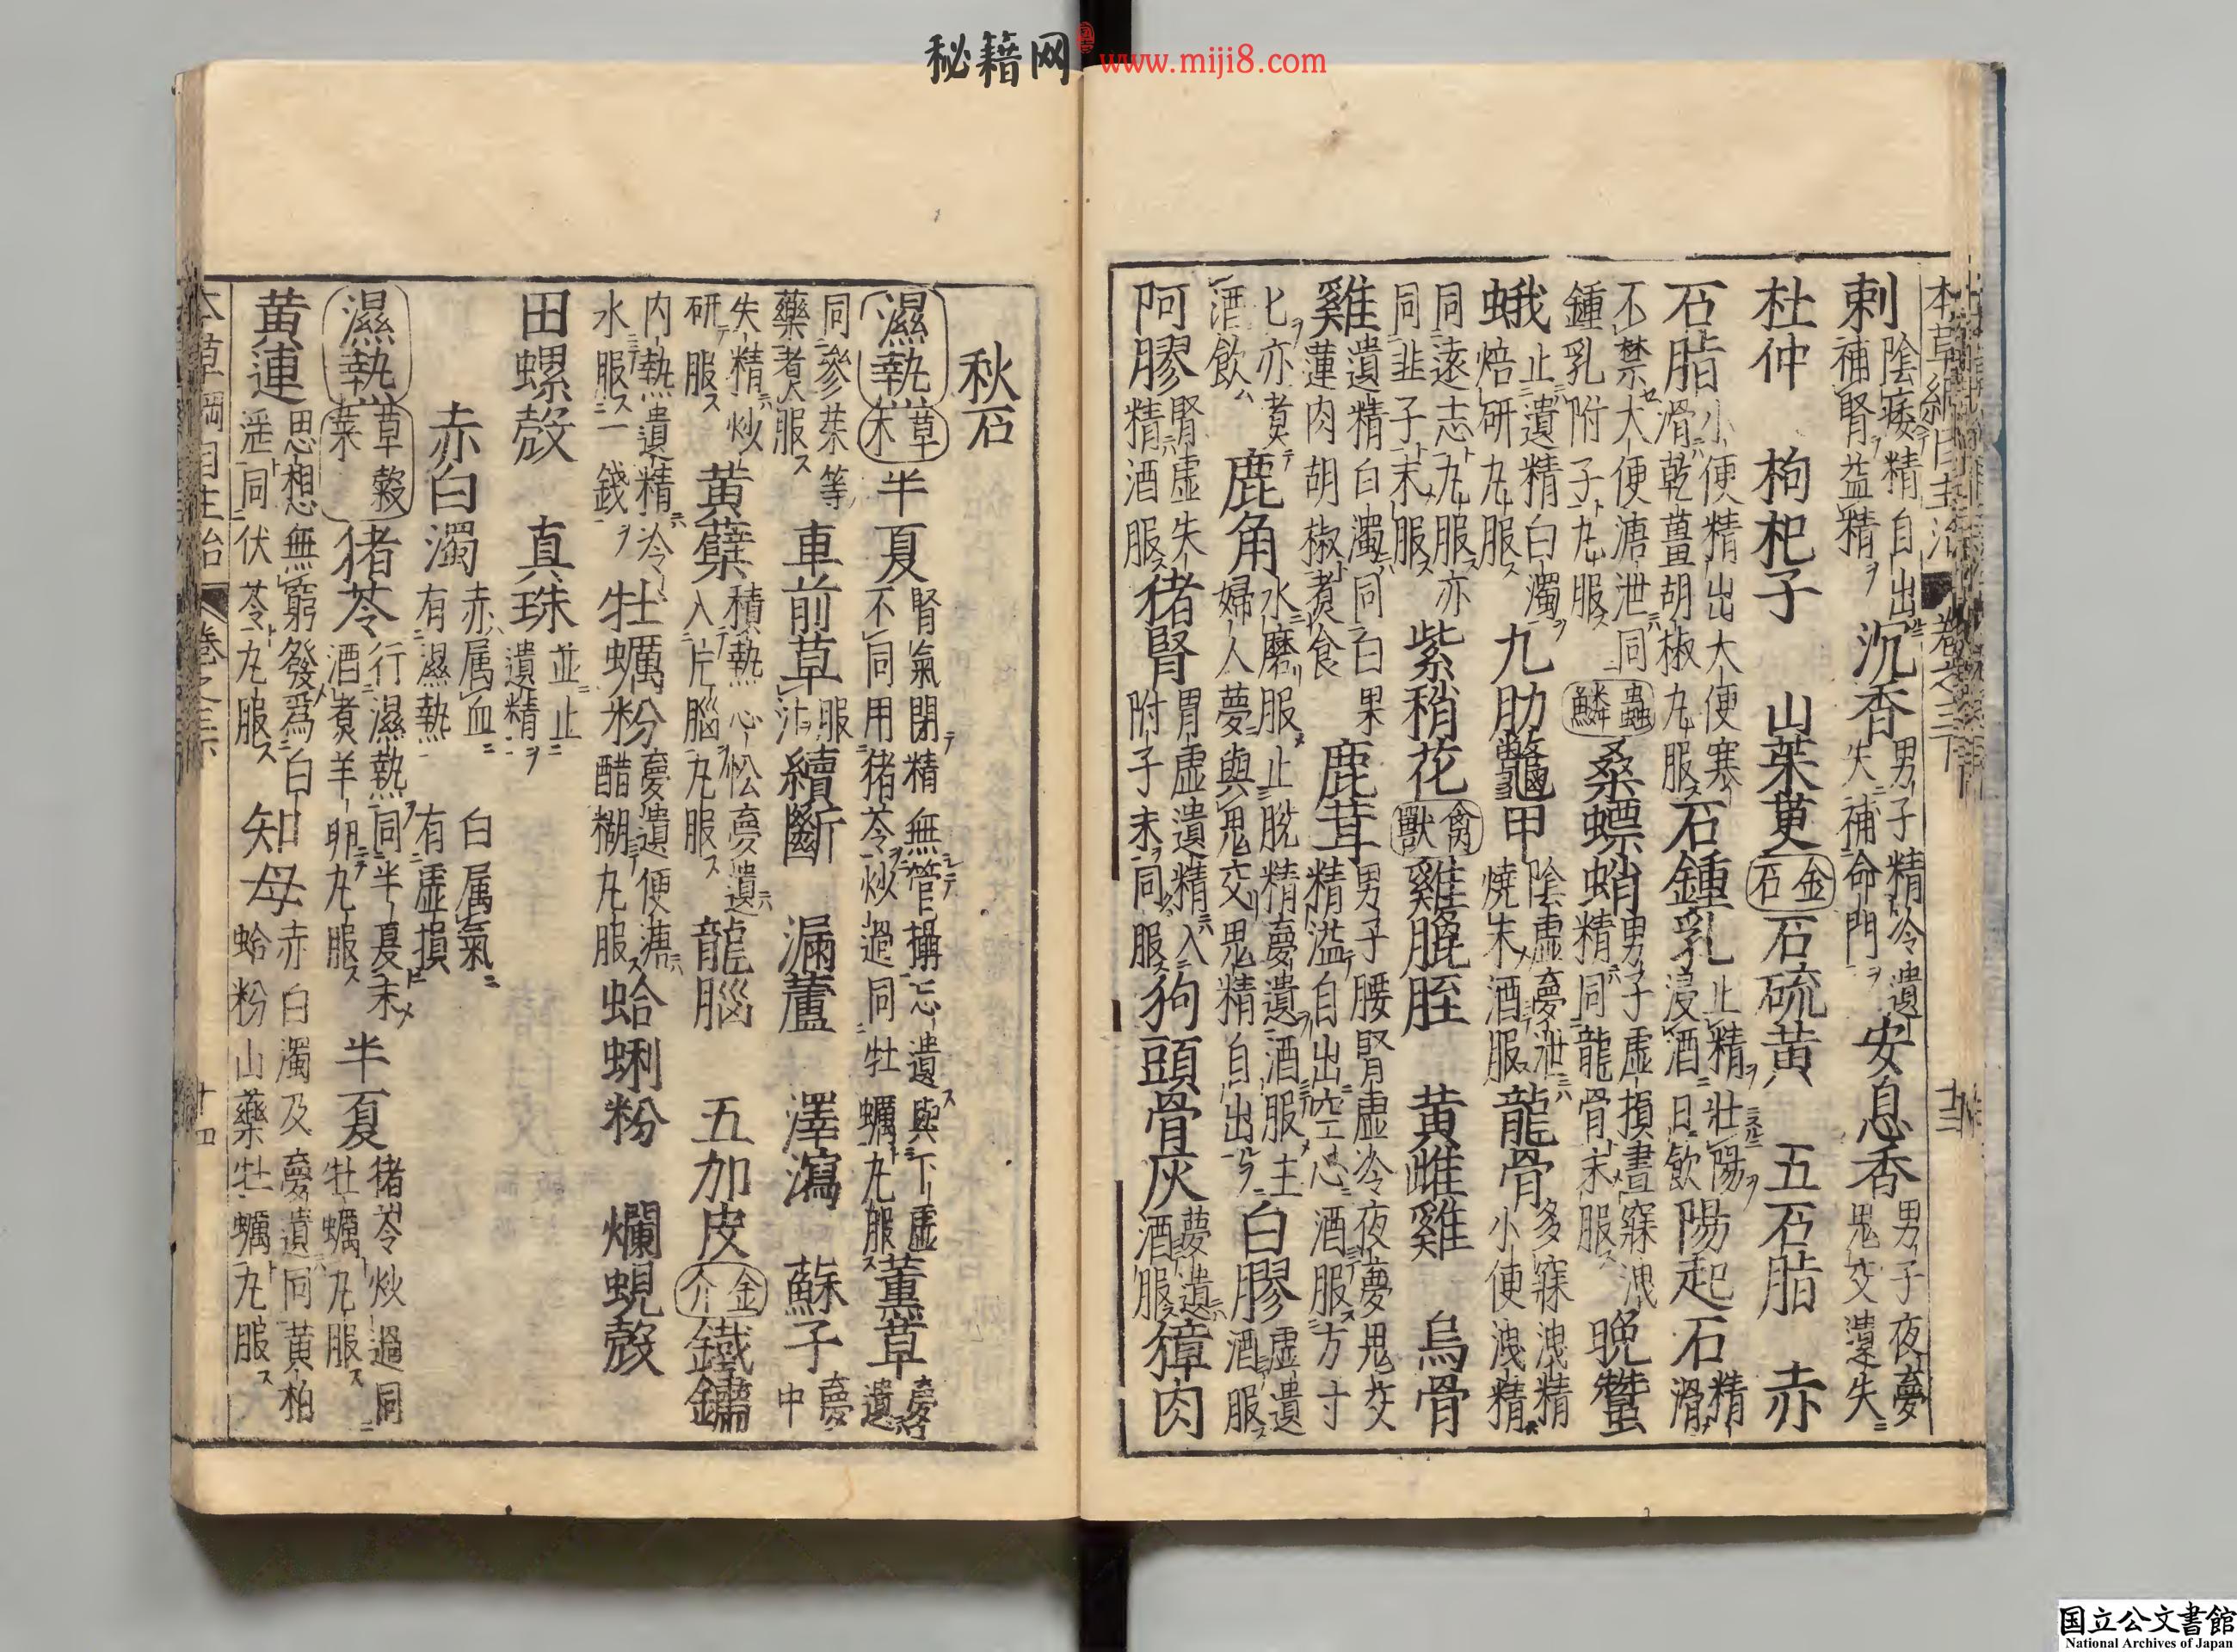 秘籍网 www.miji8.com
本草綱目主治 卷之三下 十三
刺 陰痿精自出補腎益精 沉香 男子精冷遺失補命門 安息香 男子夜夢鬼交遺失
杜仲 枸杞子 山茱萸 金石 石硫黄 五石脂 赤
石脂 小便精出大便寒滑乾薑胡椒丸服 石鍾乳 止精壯陽浸酒日飲 陽起石 精滑
不禁大便溏泄同鍾乳附子丸服 蟲鱗 桑螵蛸 男子虚損晝寐洩精同龍骨末服 晩蠶
蛾 止遺精白濁焙研丸服 九肋龜甲 陰虚夢泄燒末酒服 龍骨 多寐洩精小便洩精
同遠志丸服亦同韭子末服 紫稍花 禽獸 雞膍胵 黄雌雞 烏骨
雞 遺精白濁同白果蓮肉胡椒煮食 鹿茸 男子腰腎虚冷夜夢鬼交精溢自出空心酒服方寸
匕亦煮酒飲 鹿角 水磨服止脱精夢遺酒服主婦人夢與鬼交鬼精自出 白膠 虚遺酒服
阿膠 腎虚失精酒服 猪腎 腎虚遺精入附子末同服 狗頭骨灰 夢遺酒服 獐肉
秋石
濕熱 草木 半夏 腎氣閉精無管攝忘遺與下虚不同用猪苓炒過同牡蠣丸服 薰草 夢遺
同參茱等藥煮服 車前草 服沽 續斷 漏蘆 澤瀉 蘇子 夢中
失精炒研服 黄蘗 積熱心忪夢遺入片腦丸服 龍腦 五加皮 金介 鐵鏽
内熱遺精冷水服一錢 牡蠣粉 夢遺便溏醋糊丸服 蛤蜊粉 爛蜆殼
田螺殼 真珠 並止遺精
赤白濁 赤属血白属氣有濕熱有虚損
濕熱 草穀菜 猪苓 行濕熱同半夏末酒煮羊卵丸服 半夏 猪苓炒過同牡蠣丸服
黄連 思想無窮發爲白淫同伏苓丸服 知母 赤白濁及夢遺同黄柏蛤粉山藥牡蠣丸服
本草綱目主治 卷之三 十四
国立公文書館
National Archives of Japan